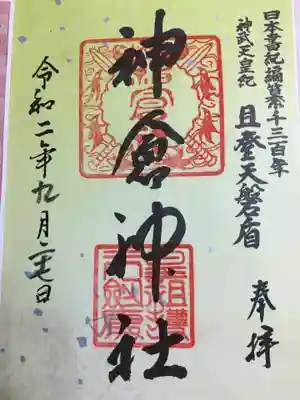 日本書紀編纂千三百年
神武天皇紀
且登天磐盾
奉拝
神倉神社
令和二年九月二七日